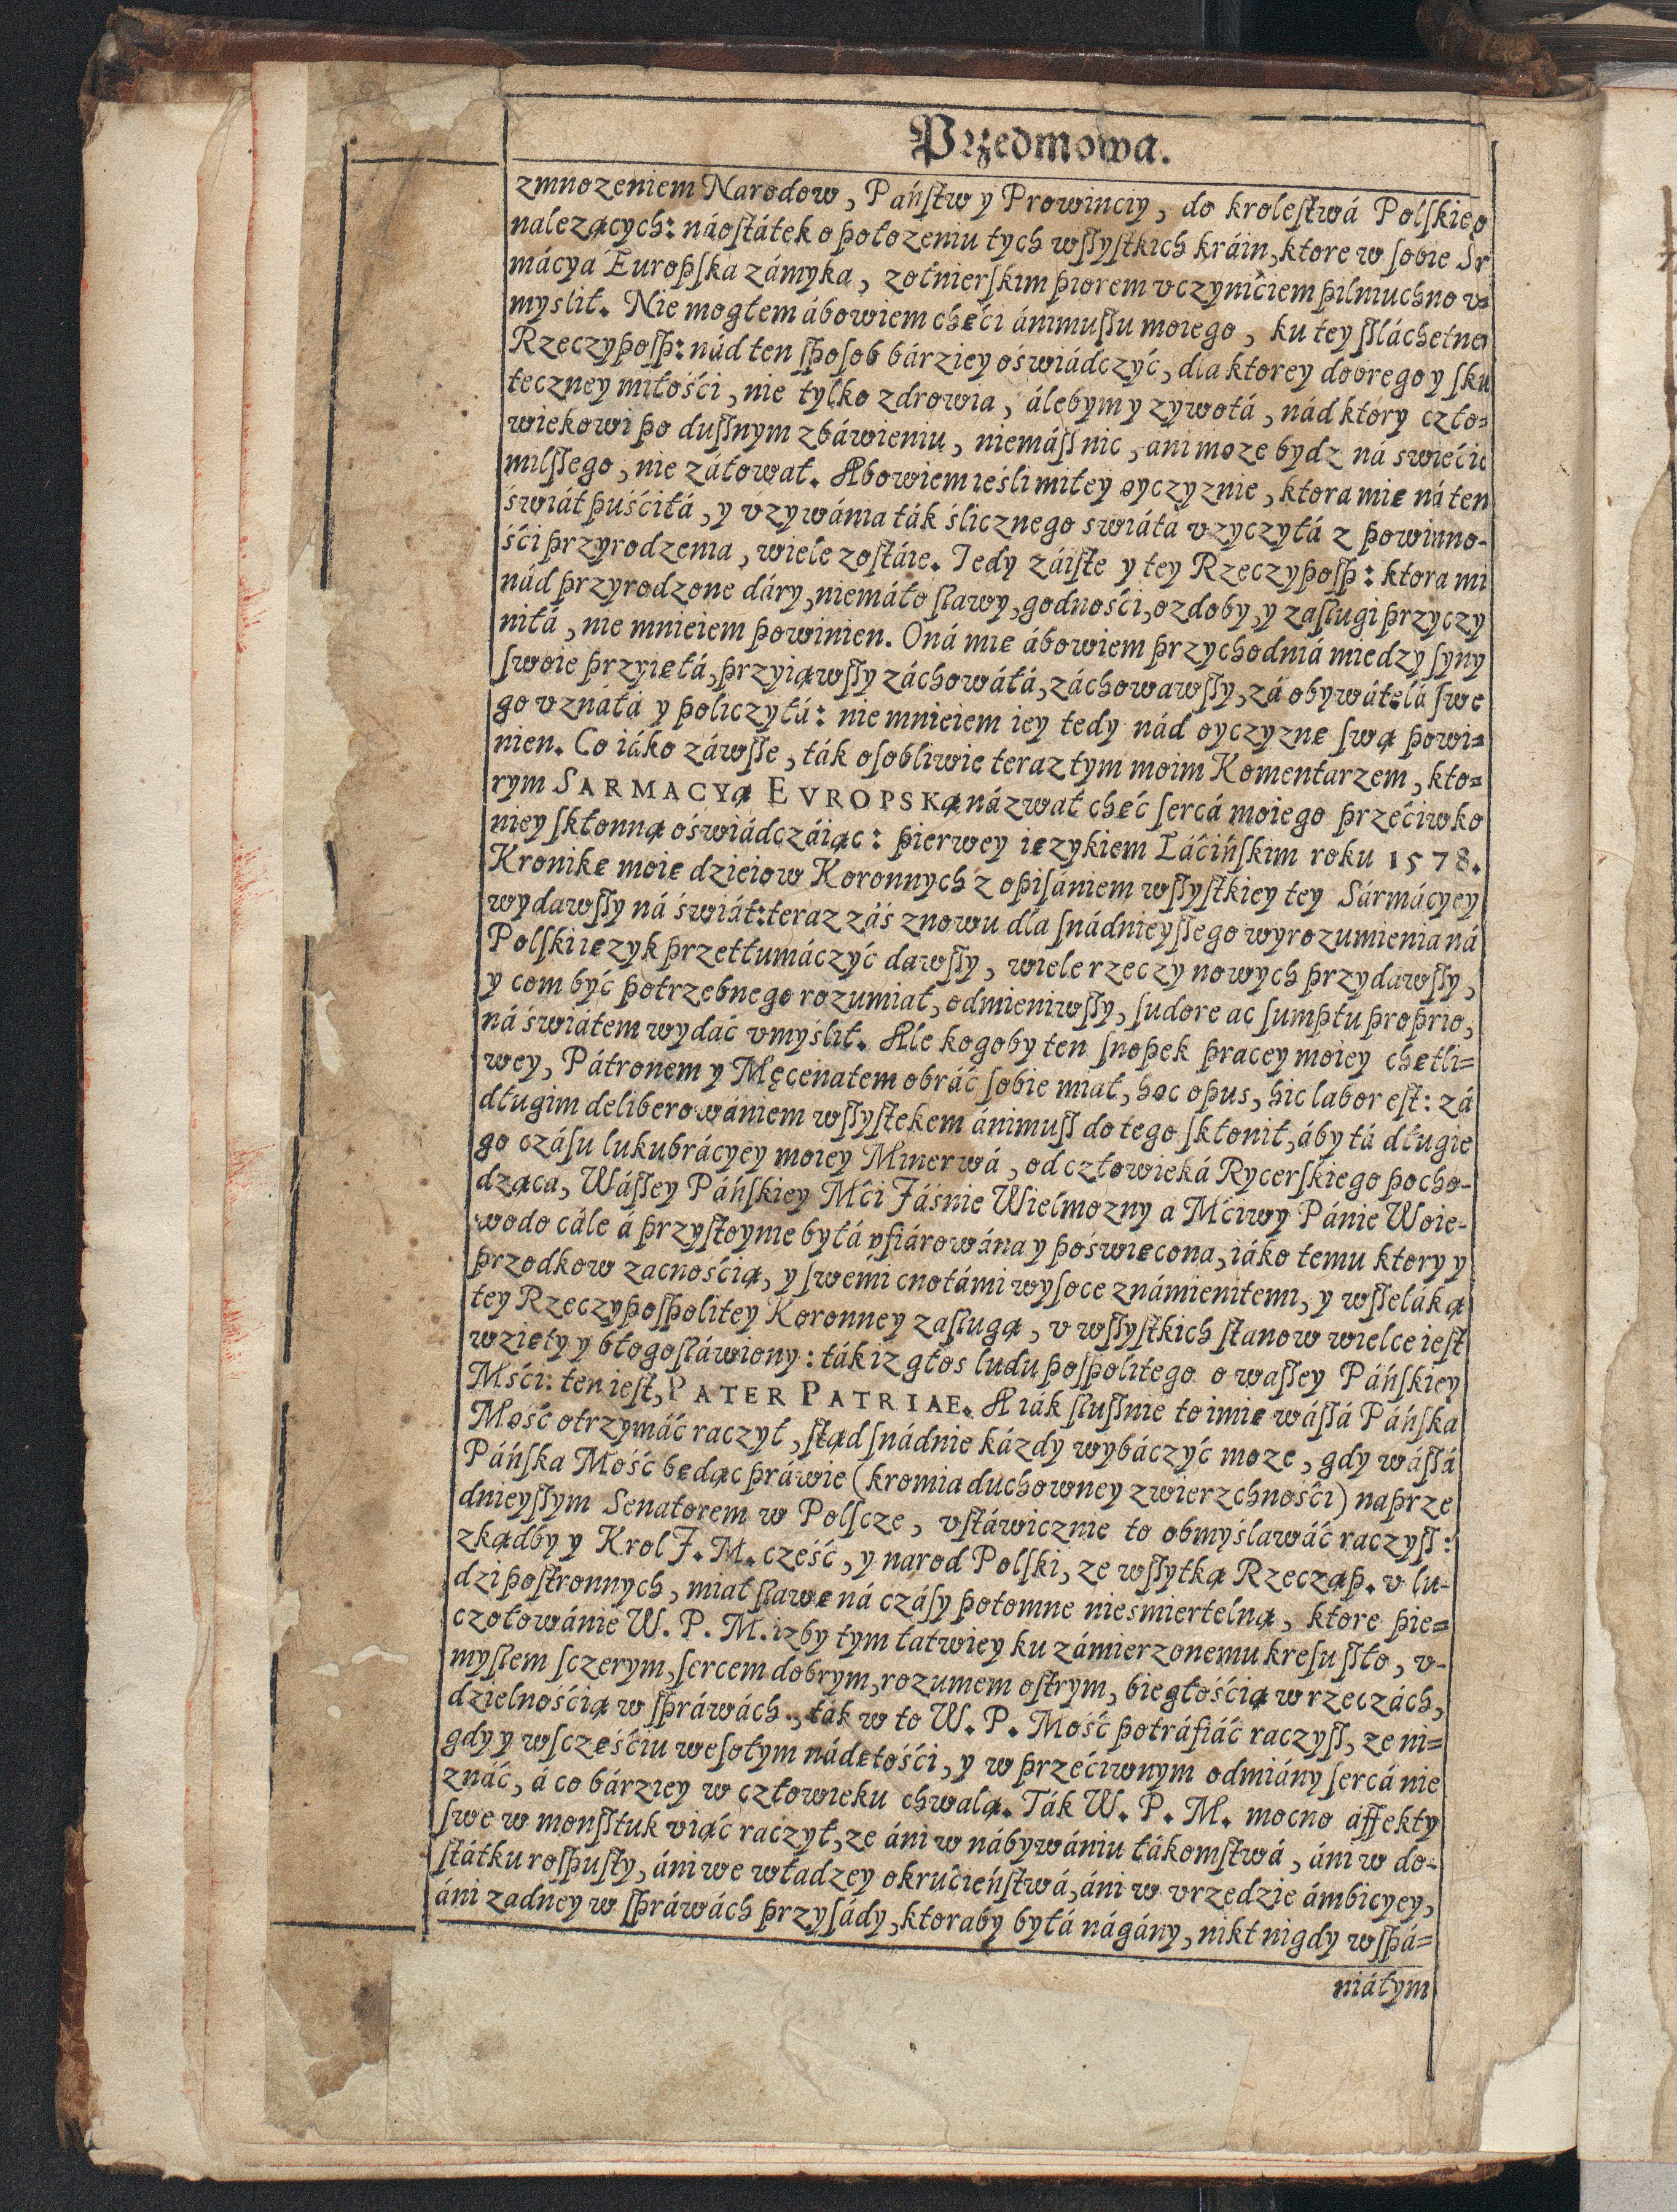 Przedmowa.
zmnozeniem Narodow, Pańſtw y Prowinciy, do kroleſtwá Polſkieo
nalezących: náoſtátek o połozeniu tych wſſyſtkich kráin, ktore w ſobie Sr
mácya Europſka zámyka, zołnierſkim piorem vczynićiem pilniuchno v=
myslił. Nie mogłem ábowiem chęći ánimuſſu moiego, ku tey ſſláchetney
Rzeczypoſp: nád ten ſpoſob bárziey oświádczyć, dla ktorey dobrego y ſku
teczney miłośći, nie tylko zdrowia, álebym y zywotá, nád ktory czło=
wiekowi po duſſnym zbáwieniu, niemáſſ nic, ani moze bydz ná swiećie
milſſego, nie záłował. Abowiem ieśli miłey oyczyznie, ktora mię ná ten
świát puśćiłá, y vzywánia ták ślicznego swiátá vzyczyłá z powinno-
śći przyrodzenia, wiele zoſtáie. Tedy záiſte y tey Rzeczypoſp: ktora mi
nád przyrodzone dáry, niemáło ſlawy, godnośći, ozdoby, y zaſlugi przyczy
niłá, nie mnieiem powinien. Oná mię ábowiem przychodniá miedzy ſyny
ſwoie przyięłá, przyiąwſſy záchowáłá, záchowawſſy, zá obywátelá ſwe
go vznáłá y policzyłá: nie mnieiem iey tedy nád oyczyznę ſwą powi=
nien. Co iáko záwſſe, ták oſobliwie teraz tym moim Komentarzem, kto=
rym SARMACYą EVROPSKą názwał chęć ſercá moiego przećiwko
niey ſkłonną oświádczáiąc: pierwey ięzykiem Láćińſkim roku 1578.
Kronikę moię dzieiow Koronnych z opiſániem wſſyſtkiey tey Sármácyey
wydawſſy ná świát: teraz záś znowu dla ſnádnieyſſego wyrozumienia ná
Polſki ięzyk przetłumáczyć dawſſy, wiele rzeczy nowych przydawſſy,
y com być potrzebnego rozumiał, odmieniwſſy, ſudore ac ſumptu proprio,
ná świátem wydáć vmyślił. Ale kogoby ten ſnopek pracey moiey chętli=
wey, Pátronem y Męcenatem obráć ſobie miał, hoc opus, hic labor eſt: zá
długim deliberowániem wſſyſtekem ánimuſſ do tego ſkłonił, áby tá długie
go czáſu lukubrácyey moiey Minerwá, od człowieká Rycerſkiego pocho-
dząca, Wáſſey Páńſkiey Mći Jáśnie Wielmozny a Mćiwy Pánie Woie-
wodo cále á przyſtoynie byłá ofiárowána y poświęcona, iáko temu ktory y
przodkow zacnośćią, y ſwemi cnotámi wyſoce známienitemi, y wſſeláką
tey Rzeczypoſpolitey Koronney zaſlugą, v wſſyſtkich ſtanow wielce ieſt
wzięty y błogoſláwiony: ták iz głos ludu poſpolitego o waſſey Páńſkiey
Mśći: ten ieſt, PATER PATRIAE. A iák ſluſſnie to imię wáſſá Páńſka
Mość otrzymáć raczył, ſtąd ſnádnie kázdy wybáczyć moze, gdy wáſſá
Páńſka Mość będąc práwie (kromia duchowney zwierzchnośći) naprze
dnieyſſym Senatorem w Polſcze, vſtáwicznie to obmyślawáć raczyſſ:
zkądby y Krol J. M. cześć, y narod Polſki, ze wſſytką Rzecząp. v lu-
dzi poſtronnych, miał ſlawę ná czáſy potomne niesmiertelną, ktore pie=
czołowánie W. P. M. izby tym łatwiey ku zámierzonemu kreſu ſſło, v-
myſlem ſczerym, ſercem dobrym, rozumem oſtrym, biegłośćią w rzeczách,
dzielnośćią w ſpráwách, ták w to W. P. Mość potráfiáć raczyſſ, ze ni=
gdy y wſczęśćiu weſołym nádętośći, y w przećiwnym odmiány ſercá nie
znáć, á co bárziey w człowieku chwalą. Ták W. P. M. mocno áffekty
ſwe w monſſtuk viąć raczył, ze áni w nábywániu łákomſtwá, áni w do-
ſtátku roſpuſty, áni we władzey okrućieńſtwá, áni w vrzędzie ámbicyey,
áni zadney w ſpráwách przyſády, ktoraby byłá nágány, nikt nigdy wſpá=
niáłym